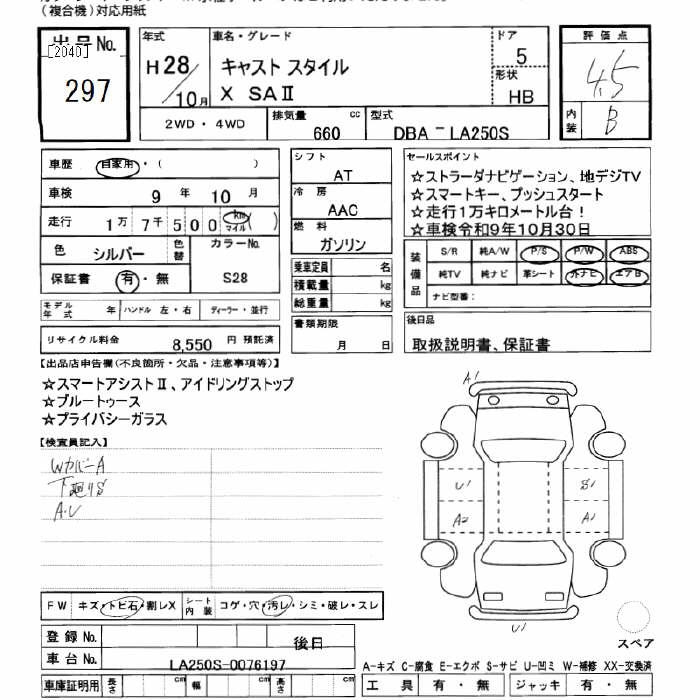 (複合機)対応用紙
出品No.
[2040]
297
年式
H28/10月
車名・グレード
キャスト スタイル
X SAⅡ
ドア
5
形状
HB
2WD・4WD
排気量 660 cc
型式 DBA-LA250S
評価点
4.5
内装 B
車歴 自家用・( )
車検 9年 10月
走行 1万 7千 5 0 0 km マイル ( )
色 シルバー 色替 カラーNo.
保証書 有・無 S28
モデル年式 年 ハンドル 左・右 ディーラー・並行
リサイクル料金 8,550 円 預託済
シフト
AT
冷房
AAC
燃料
ガソリン
乗車定員 名
積載量 kg
総重量 kg
書類期限
月 日
セールスポイント
☆ストラーダナビゲーション、地デジTV
☆スマートキー、プッシュスタート
☆走行1万キロメートル台!
☆車検令和9年10月30日
装備品
S/R 純A/W P/S P/W ABS
純TV 純ナビ 革シート 外ナビ エアB
ナビ型番:
後日品
取扱説明書、保証書
【出品店申告欄(不良箇所・欠品・注意事項等)】
☆スマートアシストⅡ、アイドリングストップ
☆ブルートゥース
☆プライバシーガラス
【検査員記入】
WカバーA
下廻りS
A.U
A1
U1
S1
A2
A1
U1
スペア
FW キズ・トビ石・割レX シート内装 コゲ・穴・汚レ・シミ・破レ・スレ
登録No. 後日
車台No. LA250S-0076197
A-キズ C-腐食 E-エクボ S-サビ U-凹ミ W-補修 XX-交換済
車庫証明用 長さ cm 幅 cm 高さ cm
工具 有・無 ジャッキ 有・無